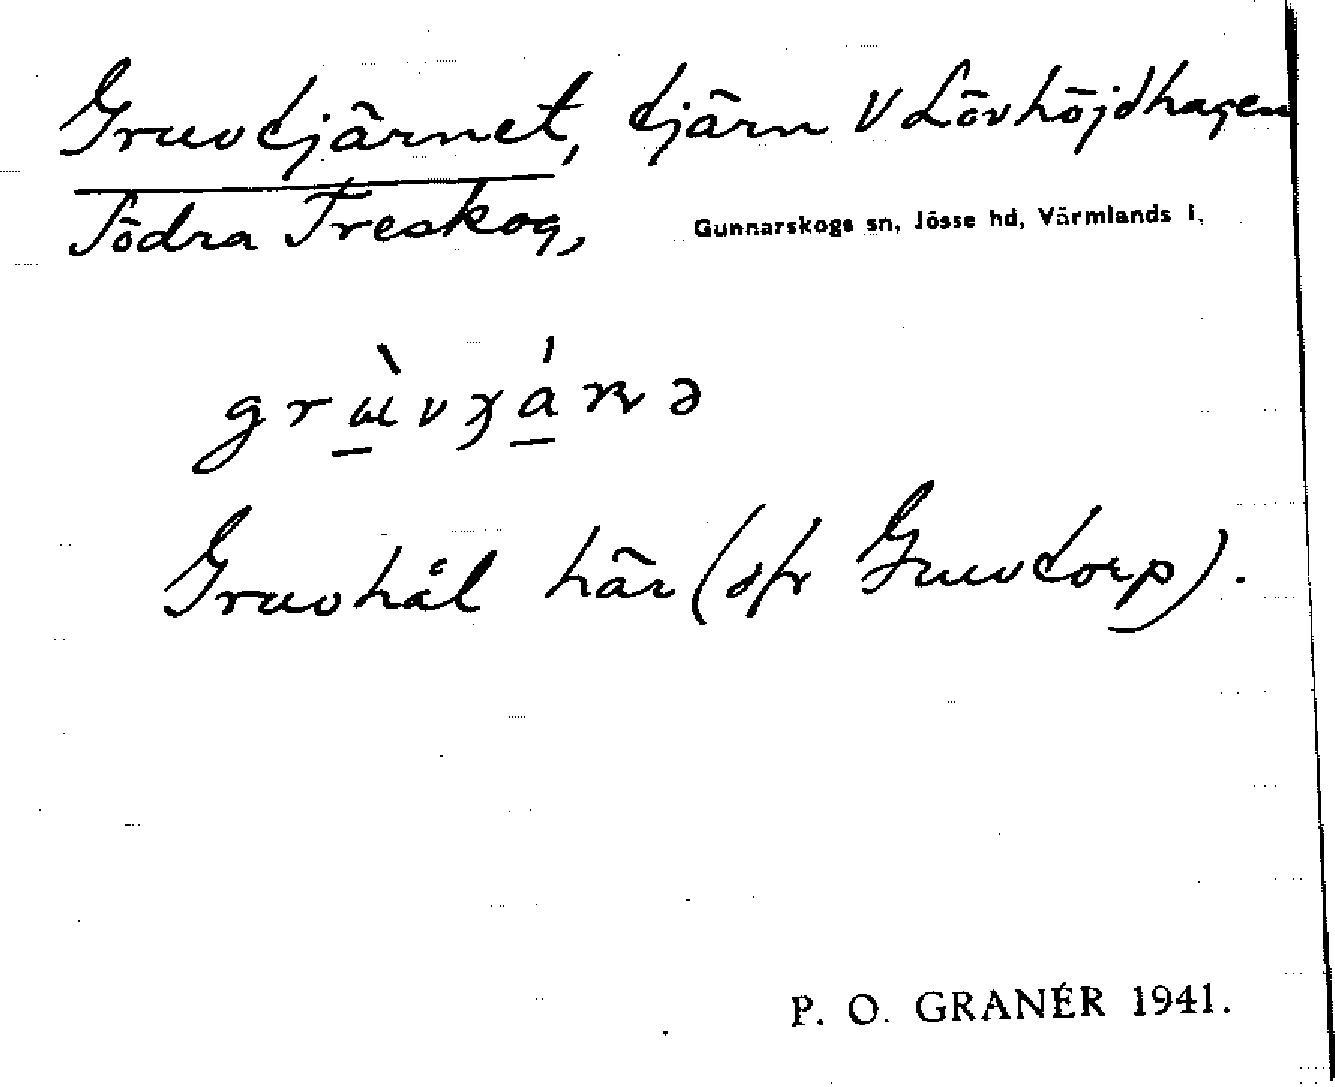 Gruvtjärnet, tjärn V Lövhöjdhagen
Södra Treskog, Gunnarskogs sn, Jösse hd, Värmlands l,
Gruvhål här (jfr Gruvtorp).
P. O. GRANÉR 1941.